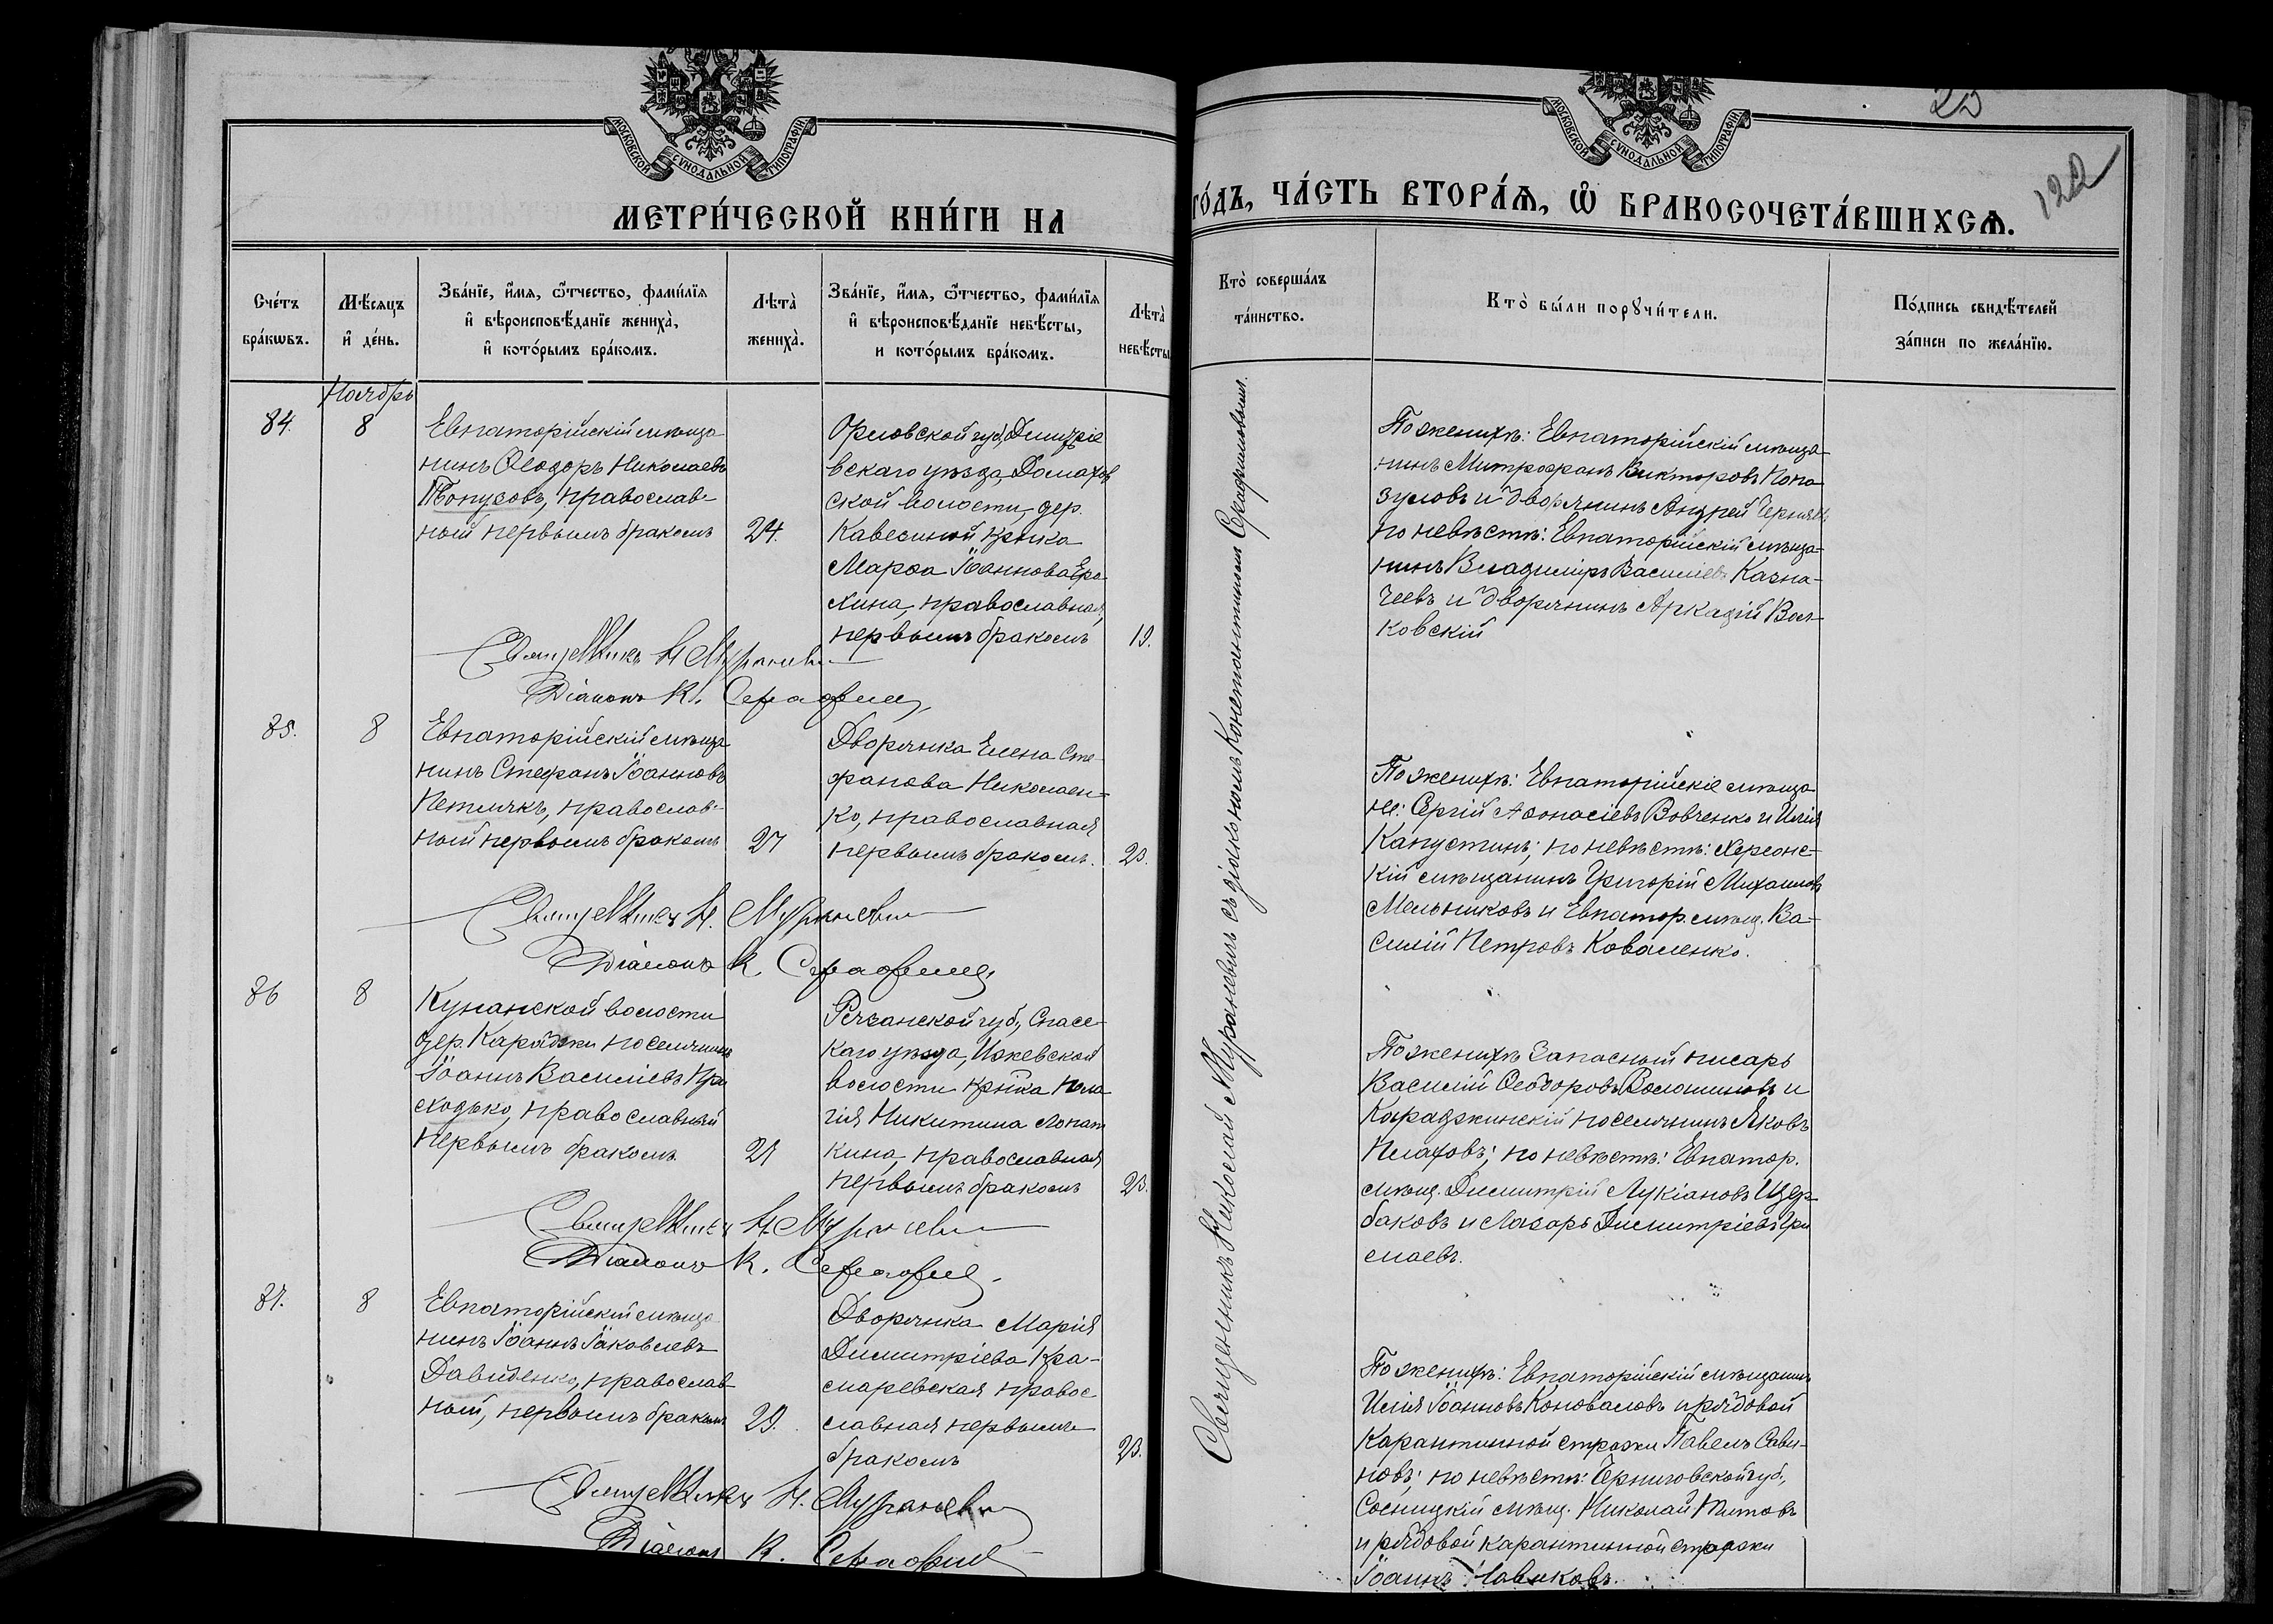 МОСКОВСКОЙ СѴНОДАЛЬНОЙ ТИПОГРАФІИ
МЕТРИ́ЧЕСКОЙ КНИ́ГИ НА
Сче́тъ бра́кѡвъ.
Мѣ́сяцъ и҆ де́нь.
Зва́нїе, и҆́мя, ѻ҆́тчество, фами́лїя
и҆ вѣроисповѣ́данїе жениха̀,
и҆ кото́рымъ бра́комъ.
Лѣта̀ жениха̀.
Зва́нїе, и҆́мя, ѻ҆́тчество, фами́лїя
и҆ вѣроисповѣ́данїе невѣ́сты,
и кото́рымъ бра́комъ.
Лѣта̀ невѣ́сты
Ноябрь
84. 8
Евпаторійскій мѣща-
нинъ Ѳеодоръ Николаевъ
православ-
ный первымъ бракомъ 24.
Орловской губ., Димитріе
вскаго уѣзда, Домахов
ской волости, дер.
кр-нка
Марѳа Іоаннова Ера-
хина, православная,
первымъ бракомъ 19.
Священникъ Н. Мураневичъ
Діаконъ К. Серафимов
85. 8
Евпаторійскій мѣща
нинъ Стефанъ Іоанновъ
Петлякъ, православ-
ный первымъ бракомъ 27
Дворянка Елена Сте-
фанова Николаен-
ко, православная
первымъ бракомъ. 23.
Священникъ Н. Мураневичъ
Діаконъ К. Серафимов
86 8
Кунанской волости
дер. Караджи поселянинъ
Іоаннъ Василіевъ При
ходько, православный
первымъ бракомъ. 21
Рязанской губ., Спасс-
каго уѣзда, Ижевской
волости кр-нка Пела
гія Никитина Лопат
кина, православная
первымъ бракомъ 23.
Священникъ Н. Мураневичъ
Діаконъ К. Серафимов
87. 8
Евпаторійскій мѣща
нинъ Іоаннъ Іаковлевъ
Давиденко, православ-
ный, первымъ бракомъ 29.
Дворянка Марія
Димитріева Кра-
маревская правос
славная первымъ
бракомъ 23.
Священникъ Н. Мураневичъ
Діаконъ К. Серафимов
122
МОСКОВСКОЙ СѴНОДАЛЬНОЙ ТИПОГРАФІИ
ГО́ДЪ, ЧА́СТЬ ВТОРА́Ѧ, Ѽ БРАКОСОЧЕТА́ВШИХСѦ.
Кто̀ соверша́лъ та́инство.
Кто̀ бы́ли порꙋчи́тели.
По́дпись свидѣ́телей
за́писи по жела́нїю.
Священникъ Николай Мураневичъ съ діакономъ Константиномъ Серафимовымъ.
По женихѣ: Евпаторійскій мѣща-
нинъ Митрофанъ Викторовъ Попа-
зуловъ и дворянинъ Андрей
по невѣстѣ: Евпаторійскій мѣща-
нинъ Владиміръ Василіевъ Казна-
чеевъ и дворянинъ Аркадій Вол-
ковскій
По женихѣ: Евпаторійскіе мѣща-
не: Сергій Аѳонасіевъ Вовченко и Илія
Капустинъ; по невѣстѣ: Херсонс-
кій мѣщанинъ Григорій Михаиловъ
Мельниковъ и Евпатор. мѣщ. Ва-
силій Петровъ Коваленко.
По женихѣ запасный писарь
Василій Ѳеодоровъ и
Караджинскій поселянинъ Яковъ
Плаховъ; по невѣстѣ: Евпатор.
мѣщ. Димитрій Лукіановъ Щер-
баковъ и Лазарь Димитріевъ
маевъ.
По женихѣ: Евпаторійскій мѣщанинъ
Илія Іоанновъ Коноваловъ и рядовой
Карантинной стражи Павелъ Сави-
новъ; по невѣстѣ: Черниговской губ.,
Сосницкій мѣщ. Николай Титовъ
и рядовой карантинной стражи
Іоаннъ Новиковъ.